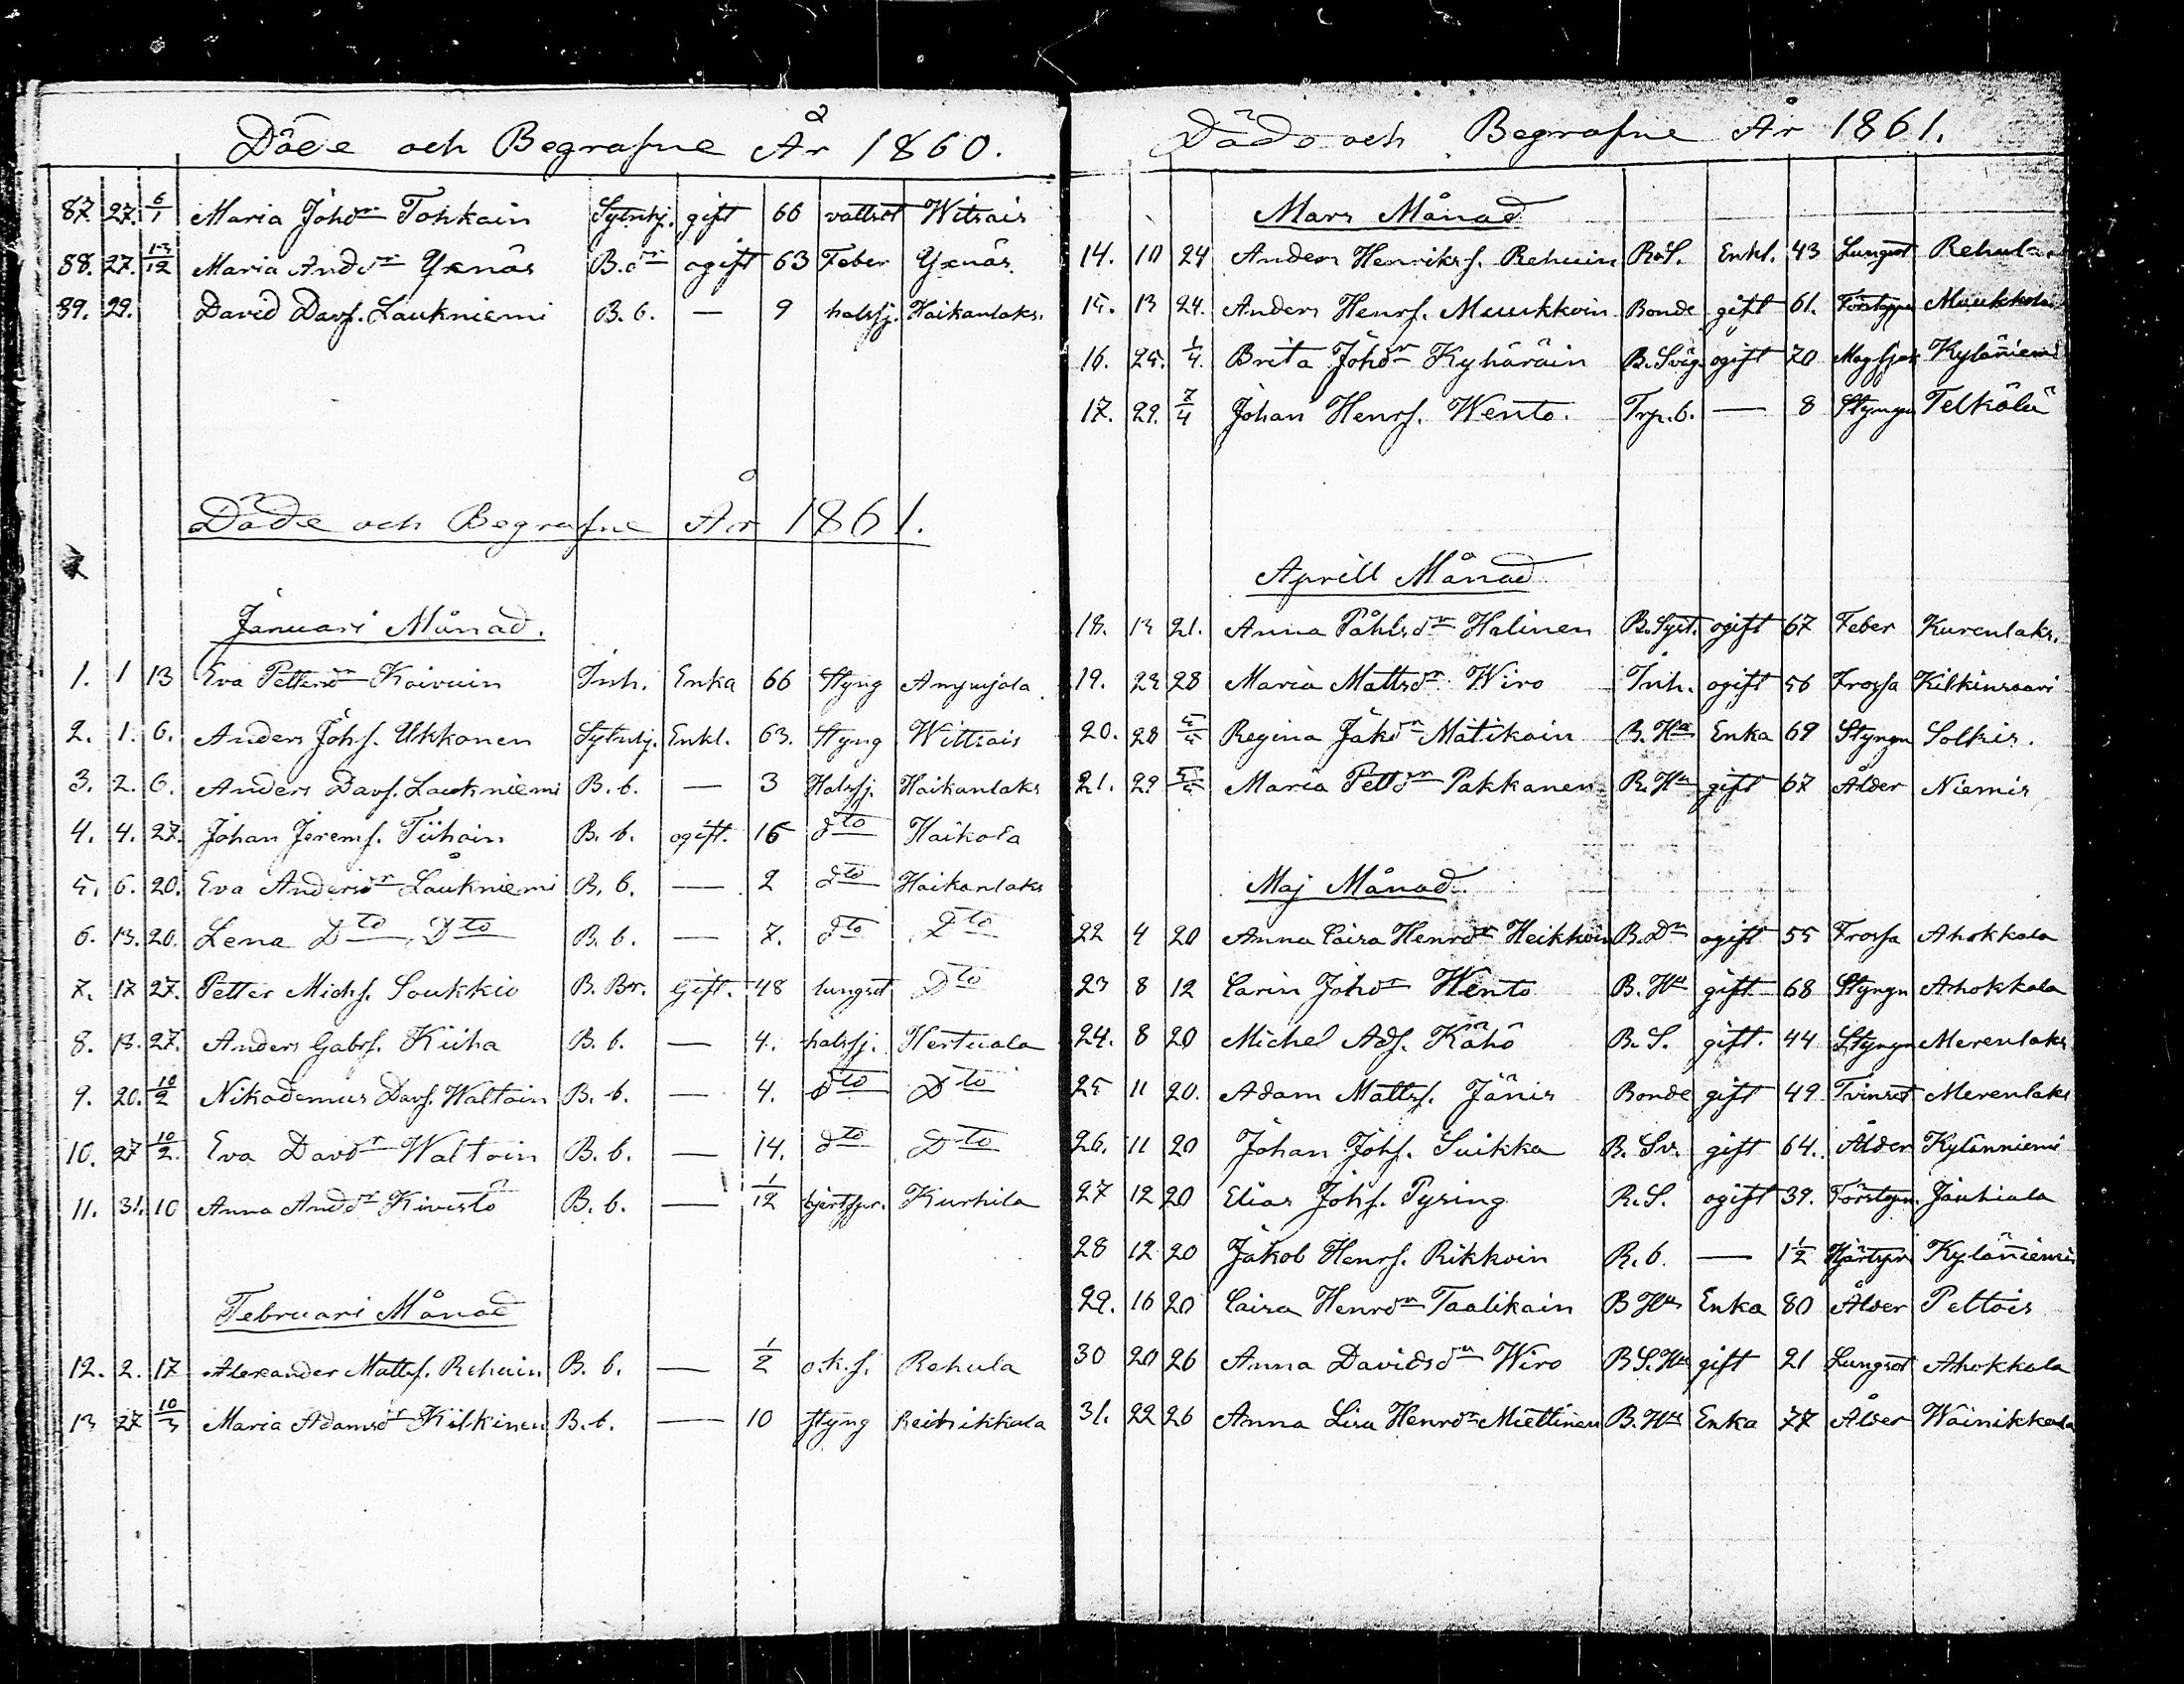 Döde och Begrafne År 1860.
87. 27. 6/1 Maria Johdr Tohkain Sytnhj. gift 66 vattsot Witsais
88. 27. 13/12 Maria Anddr Yxnäs B.dr ogift 63 Feber Yxnäs.
89. 29. David Davs. Laukniemi B. b. — 9 halssj. Haikanlaks.
Döde och Begrafne År 1861.
Januari Månad.
1. 1 13 Eva Pettersdr Koivuin Inh. Enka 66 Styng
2. 1. 6. Anders Johs. Ukkonen Sytnhj. Enkl. 63. Styng Wittsais
3. 2. 6. Anders Davs. Laukniemi B. b. — 3 Halssj. Haikanlaks
4. 4. 27. Johan Jerems. Tiihoin B. b. ogift. 16 dto Haikola
5. 6. 20. Eva Andersdr Laukniemi B. b. — 2 dto Haikanlaks
6. 13. 20. Lena Dto Dto B. b. — 7. dto Dto
7. 17 27. Petter Michs. Soukkio B. Br. Gift. 48 lungsot Dto
8. 18. 27. Anders Gabrs. Kiiha B. b. — 4. halssj. Hertuala
9. 20. 10/2 Nikodemus Davs. Waltoin B. b. — 4. Dto Dto
10. 27 10/2. Eva Davdr Waltoin B. b. — 14. dto Dto
11. 31. 10 Anna Anddr Kivistö B. b. — 1/12 hjertspr. Kurhila
Februari Månad
12. 2. 17 Alexander Matts. Rehuin B. b. — 1/2 o.k.s. Rehula
13 27 10/3 Maria Adamsdr Kilkinen B. b. — 10 styng Reitsikkala
Döde och Begrafne År 1861.
Mars Månad
14. 10 24 Anders Henrikss. Rehuin R.S. Enkl. 43 Lungsot Rehula
15. 13 24. Anders Henrs. Muukkoin Bonde gift 61. Förstoppn Muukkola
16. 25. 1/4. Brita Johdr Kyhäräin B. Sväg. ogift 70 Magsjuk Kyläniemi
17. 29. 7/4 Johan Henrs. Wento. Trp. b. — 8 Styngn Telkälä
Aprill Månad
18. 13 21. Anna Påhlsdr Halinen B. Syst. ogift 67 Feber Kurenlaks.
19. 23 28 Maria Mattsdr Wiro Inh. ogift 56 Frossa Kilkinsaari
20. 28 5/5 Regina Jakdr Mätikoin B. Hu Enka 69 Styngn Solkis.
21. 29 5/5 Maria Pettdr Pakkanen R. Hu gift 67 Ålder Niemis
Maj Månad
22 4 20 Anna Caisa Henrdr Heikkoin B. Dr ogift 55 Frossa Ahokkala
23 8 12 Carin Johdr Wento B. Hu gift 68 Styngn Ahokkala
24. 8 20 Michel Ads. Kähö B. S. gift. 44 Styngn Merenlaks
25 11 20. Adam Matts. Jänis Bonde gift 49 Tvinsot Merenlaks
26. 11 20 Johan Johs. Suikka B. Sv. gift 64. Ålder Kylänniemi
27 12 20 Elias Johs. Pysing R. S. ogift 39. Förstopn. Jauhiala
28 12 20 Jakob Henrs. Rikkoin R. b. — 1 1/2 Hjärtspr Kyläniemi
29. 16 20 Caisa Henrdr Taalikain B Hu Enka 80 Ålder Peltois
30 20 26 Anna Davidsdr Wiro B S. Hu gift 21 Lungsot Ahokkala
31. 22 26 Anna Lisa Henrdr Miettinen B. Hu Enka 77 Ålder Wainikkala